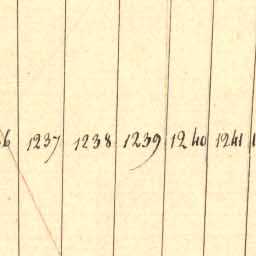 6 1237 1238 1239 1240 1241